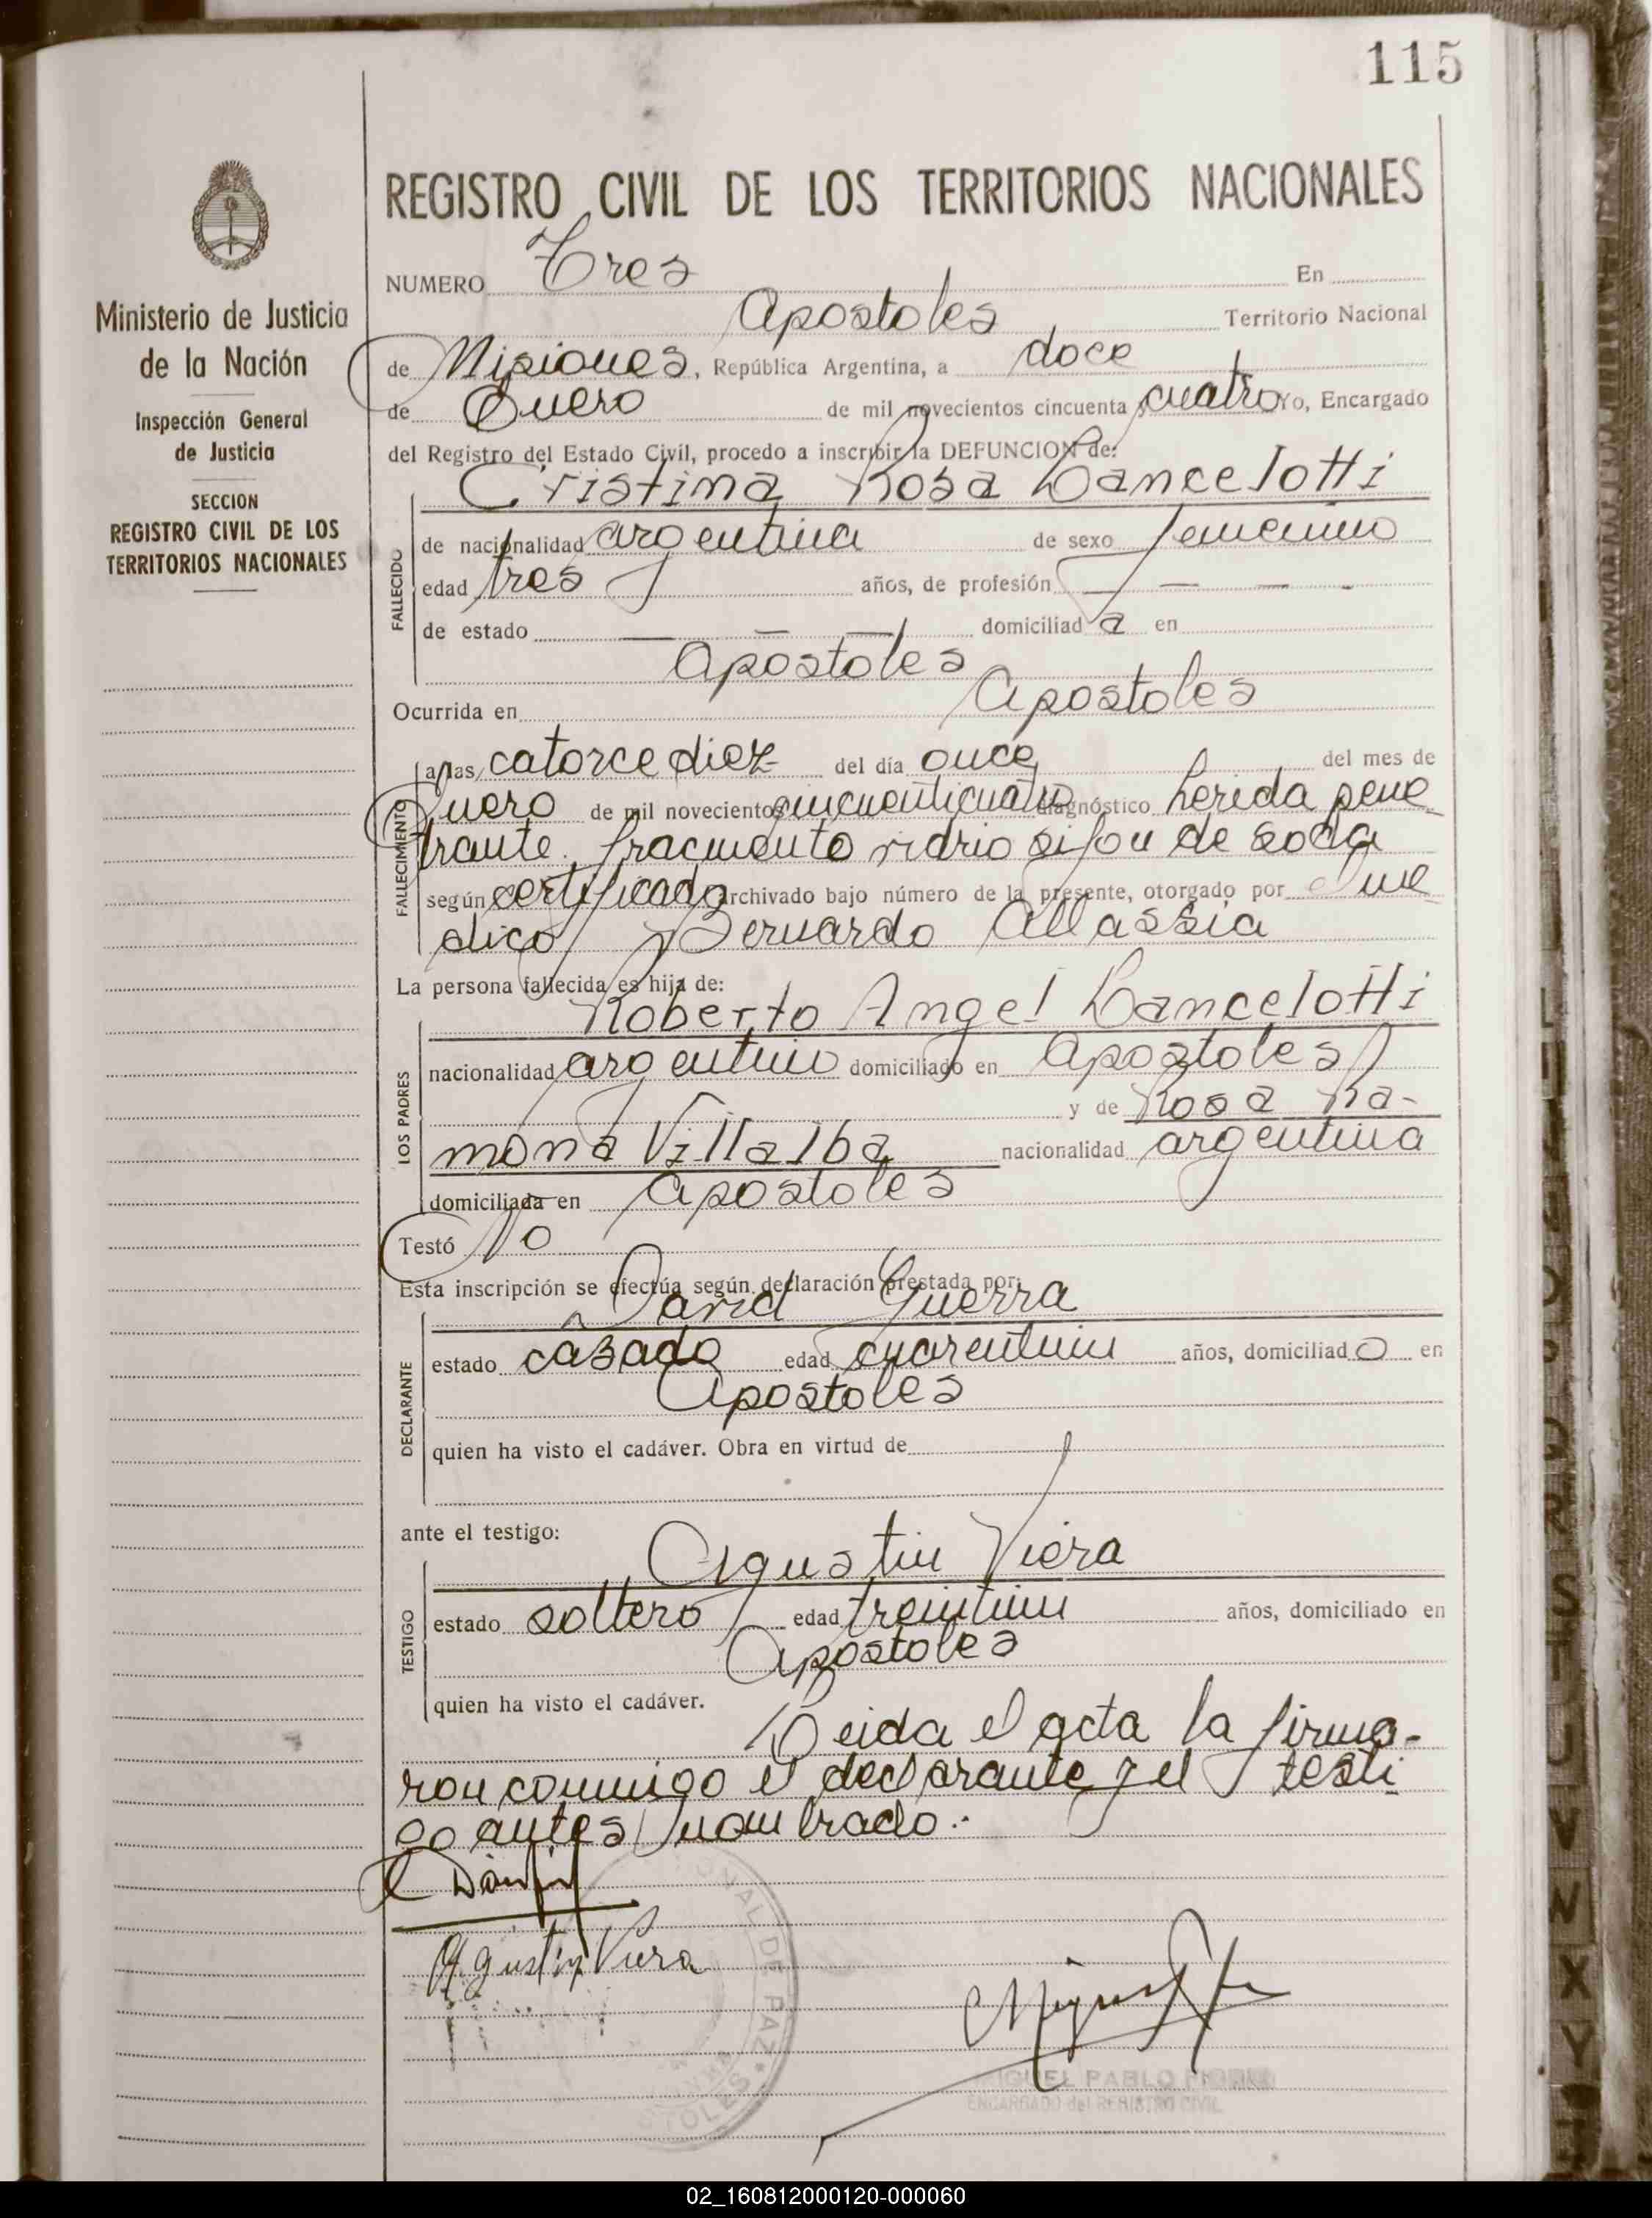 115
REGISTRO CIVIL DE LOS TERRITORIOS NACIONALES
Ministerio de Justicia
de la Nación
Inspección General
de Justicia
SECCION
REGISTRO CIVIL DE LOS
TERRITORIOS NACIONALES
NUMERO Tres En
Apostoles Territorio Nacional
de Misiones, República Argentina, a doce
de Enero de mil novecientos cincuenta y cuatro Yo, Encargado
del Registro del Estado Civil, procedo a inscribir la DEFUNCION de:
Cristina Rosa Lancelotti
FALLECIDO
de nacionalidad argentina de sexo femenino
edad tres años, de profesión — — -
de estado — — — domiciliad a en
Apostoles
Ocurrida en Apostoles
FALLECIMIENTO
a las catorce diez del día once del mes de
Enero de mil novecientos cincuenticuatro diagnóstico herida pene
trante fracmento vidrio sifon de soda
según certificado archivado bajo número de la presente, otorgado por el me
dico Bernardo Allassia
La persona fallecida es hija de:
Roberto Angel Lancelotti
LOS PADRES
nacionalidad argentino domiciliado en Apostoles
y de Rosa Ra-
mona Villalba nacionalidad argentina
domiciliada en Apostoles
Testó No
Esta inscripción se efectúa según declaración prestada por:
David Guerra
DECLARANTE
estado casado edad cuarentiun años, domiciliad o en
Apostoles
quien ha visto el cadáver. Obra en virtud de
ante el testigo:
Agustin Viera
TESTIGO
estado soltero edad treintiun años, domiciliado en
Apostoles
quien ha visto el cadáver.
Leida el acta la firma-
ron conmigo el declarante y el testi
go antes nombrado.-
Agustin Viera
MIGUEL PABLO
ENCARGADO del REGISTRO CIVIL
DE PAZ
02_160812000120-000060